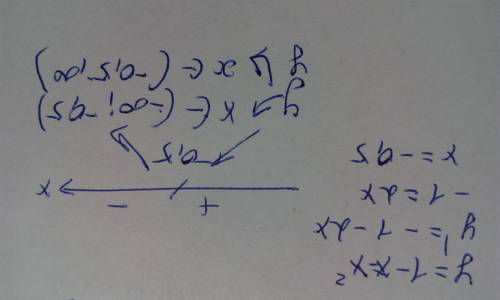 y=1-x-x²
y'=-1-2x
-1=2x
x=-0,5
+ -
x
-0,5
y ↗ x ∈ (-∞; -0,5)
y ↘ x ∈ (-0,5; ∞)